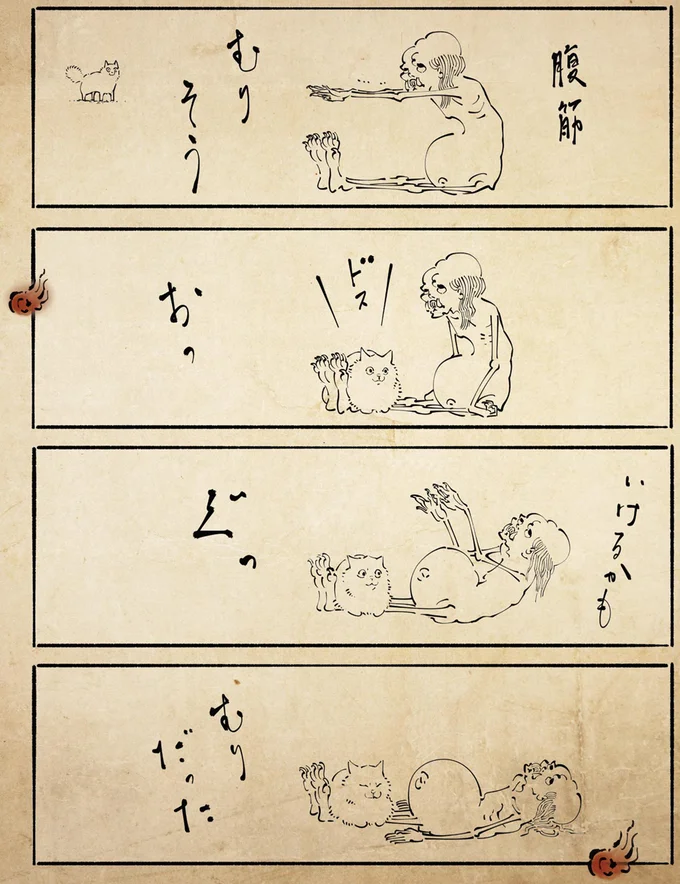 腹筋
むり
そう
ドス
おっ
いけるかも
ぐっ
むり
だった